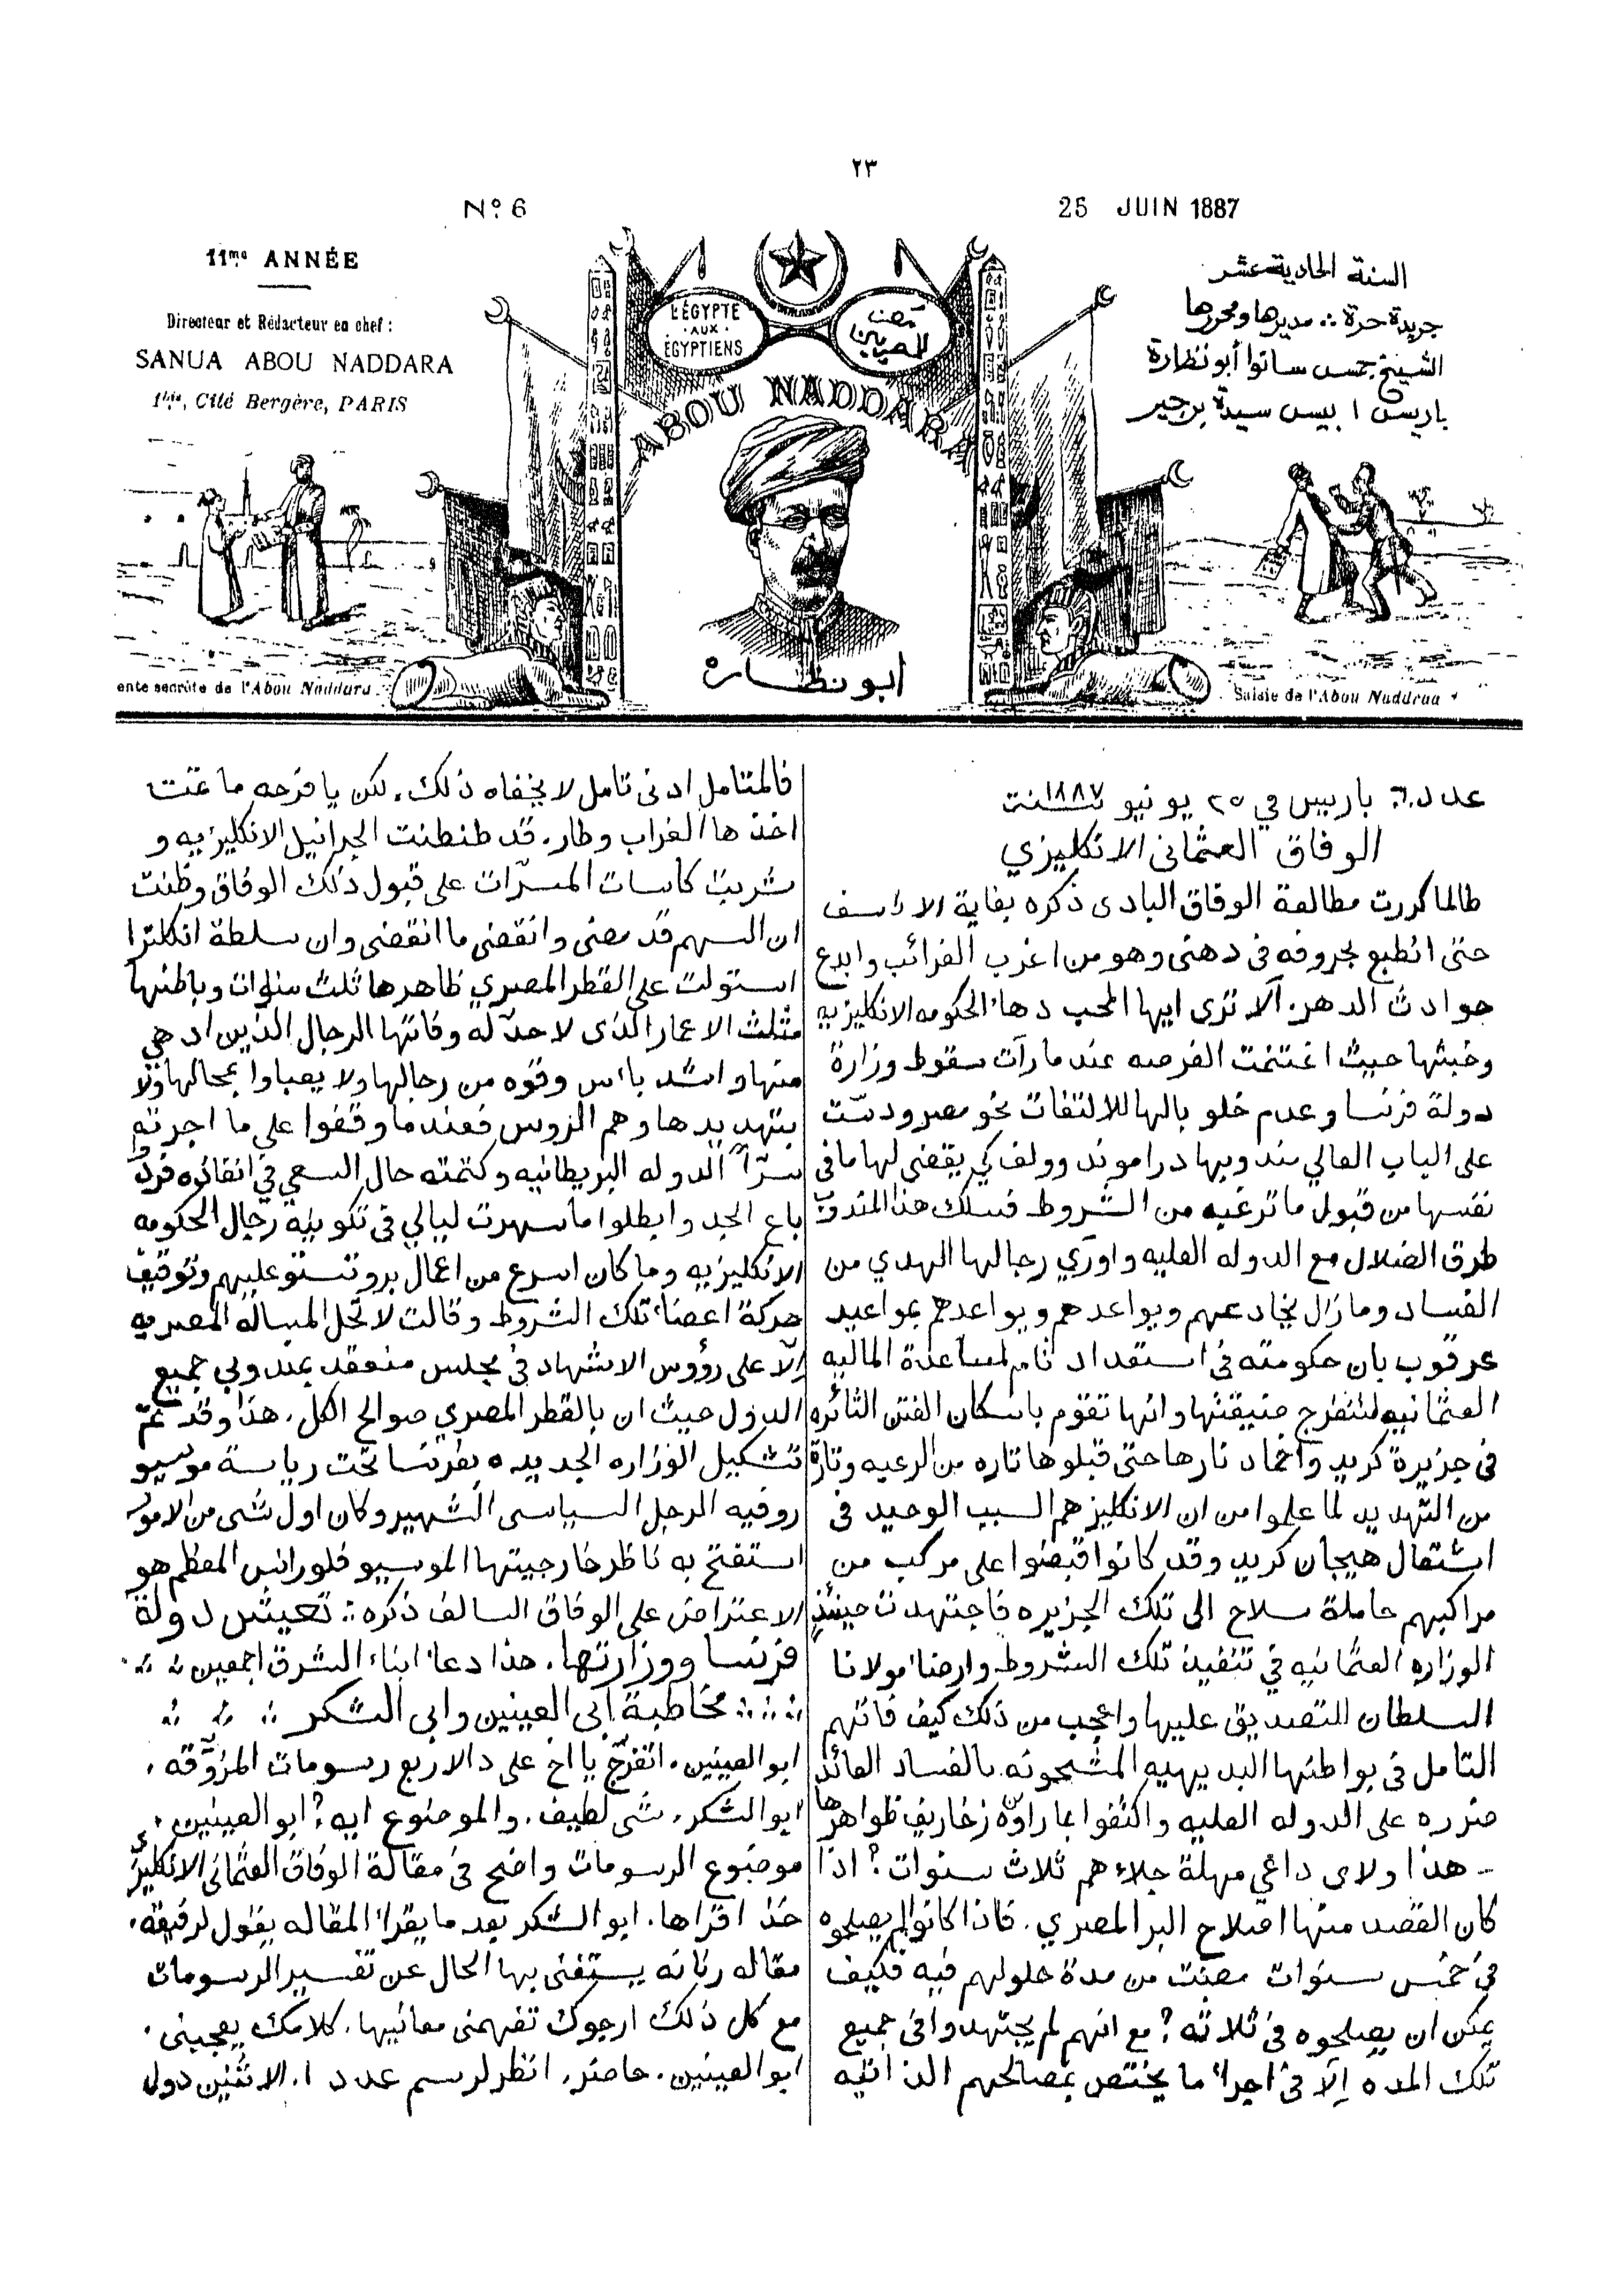 ٢٣
Nº 6
25 JUIN 1887
11me ANNÉE
Directeur et Rédacteur en chef :
SANUA ABOU NADDARA
1bis, Cité Bergère, PARIS
السنة الحادية عشر
جريدة حرة ∴ مديرها ومحررها
الشيخ جمس سانوا أبو نظارة
باريس ١ بيس سيدة برجير
L'ÉGYPTE
AUX
ÉGYPTIENS
مصر
للمصريين
ABOU NADDARA
أبو نظاره
ente secrète de l'Abou Naddara
Saisie de l'Abou Naddraa
عدد ٦ باريس في ٢٥ يونيو سنة ١٨٨٧
الوفاق العثمانى الانكليزي
طالما كررت مطالعة الوفاق البادى ذكره بغاية الاسف
حتى انطبع بحروفه فى ذهنى وهو من اغرب الغرائب وابدع
حوادث الدهر. ألا ترى ايها المحب دهاء الحكومه الانكليزيه
وخبثها حيث اغتنمت الفرصه عندما رأت سقوط وزارة
دولة فرنسا وعدم خلو بالها للالتفات نحو مصر ودست
على الباب العالي مندوبها دراموند وولف كي يقضى لها ما فى
نفسها من قبول ما ترغبه من الشروط فسلك هذا المندوب
طرق الضلال مع الدوله العليه واورى رجالها الهدي من
الفساد وما زال يخادعهم ويواعدهم ويواعدهم بمواعيد
عرقوب بان حكومته فى استعداد تام لمساعدة الماليه
العثمانيه لتنفرج ضيقتها وانها تقوم باسكان الفتن الثائره
فى جزيرة كريد واخماد نارها حتى قبلوها تاره من الرعيه وتارة
من التهديد لما علموا من ان الانكليز هم السبب الوحيد فى
اشتعال هيجان كريد وقد كانوا قبضوا على مركب من
مراكبهم حاملة سلاح الى تلك الجزيره فاجتهدت حينئذٍ
الوزاره العثمانيه في تنفيذ تلك الشروط وارضاء مولانا
السلطان للتصديق عليها واعجب من ذلك كيف فاتهم
التامل فى بواطنها البديهيه المشحونه بالفساد العائد
ضرره على الدوله العليه واكتفوا بما راوه من زخاريف ظواهرها
ـ هذا ولاى داعي مهلة جلاءهم ثلاث سنوات؟ اذا
كان القصد منها اصلاح البر المصري. فاذا كانوا لم يصلحوه
في خمس سنوات مضت من مدة حلولهم فيه فكيف
يمكن ان يصلحوه فى ثلاثه؟ مع انهم لم يجتهدوا فى جميع
تلك المده إلا فى اجراء ما يختص بمصالحهم الذاتيه
فالمتامل ادنى تامل لا يخفاه ذلك. لكن يا فرحه ما تمت
اخذها الغراب وطار. قد طنطنت الجرانيل الانكليزيه و
شربت كاسات المسرّات على قبول ذلك الوفاق وظنت
ان السهم قد مضى وانقضى ما انقضى وان سلطة انكلترا
استولت على القطر المصري ظاهرها ثلث سنوات وباطنها
مثلث الاعمار الذى لا حدّ له وفاتها الرجال الذين ادهي
منها واشد باس وقوه من رجالها ولا يعباوا بمحالها ولا
بتهديدها وهم الروس فعندما وقفوا على ما اجرته
سرّاً الدوله البريطانيه وكتمته حال السعي في انفاذه
باع الجد وابطلوا ما سهرت ليالي فى تكوينه رجال الحكومه
الانكليزيه وما كان اسرع من اعمال بروتستو عليهم وتوقيف
حركة اعضاء تلك الشروط وقالت لا تحل المساله المصريه
إلّا على رؤوس الاشهاد فى مجلس منعقد بمندوبي جميع
الدول حيث ان بالقطر المصري صوالح الكل. هذا وقد تمّ
تشكيل الوزاره الجديده بفرنسا تحت رياسة موسيو
روفيه الرجل السياسى الشهير وكان اول شى من الامور
استفتح به ناظر خارجيتها الموسيو فلورانس المعظم هو
الاعتراض على الوفاق السالف ذكره ∴ تعيش دولة
فرنسا ووزارتها. هذا دعاء ابناء الشرق اجمعين ∴ ∴
∴ ∴ مخاطبة ابى العينين وابى الشكر ∴ ∴ ∴
ابو العينين. اتفرّج يا اخ على دالاربع رسومات المزوّقه.
ابو الشكر. شى لطيف. والموضوع ايه؟ ابو العينين.
موضوع الرسومات واضح فى مقالة الوفاق العثمانى الانكليزى
خذ اقراها. ابو الشكر بعد ما يقرا المقاله يقول لرفيقه.
مقاله رنانه يستغنى بها الحال عن تفسير الرسومات
مع كل ذلك ارجوك تفهمنى معانيها. كلامك يعجبنى.
ابو العينين. حاضر. انظر لرسم عدد ١. الاثنين دول